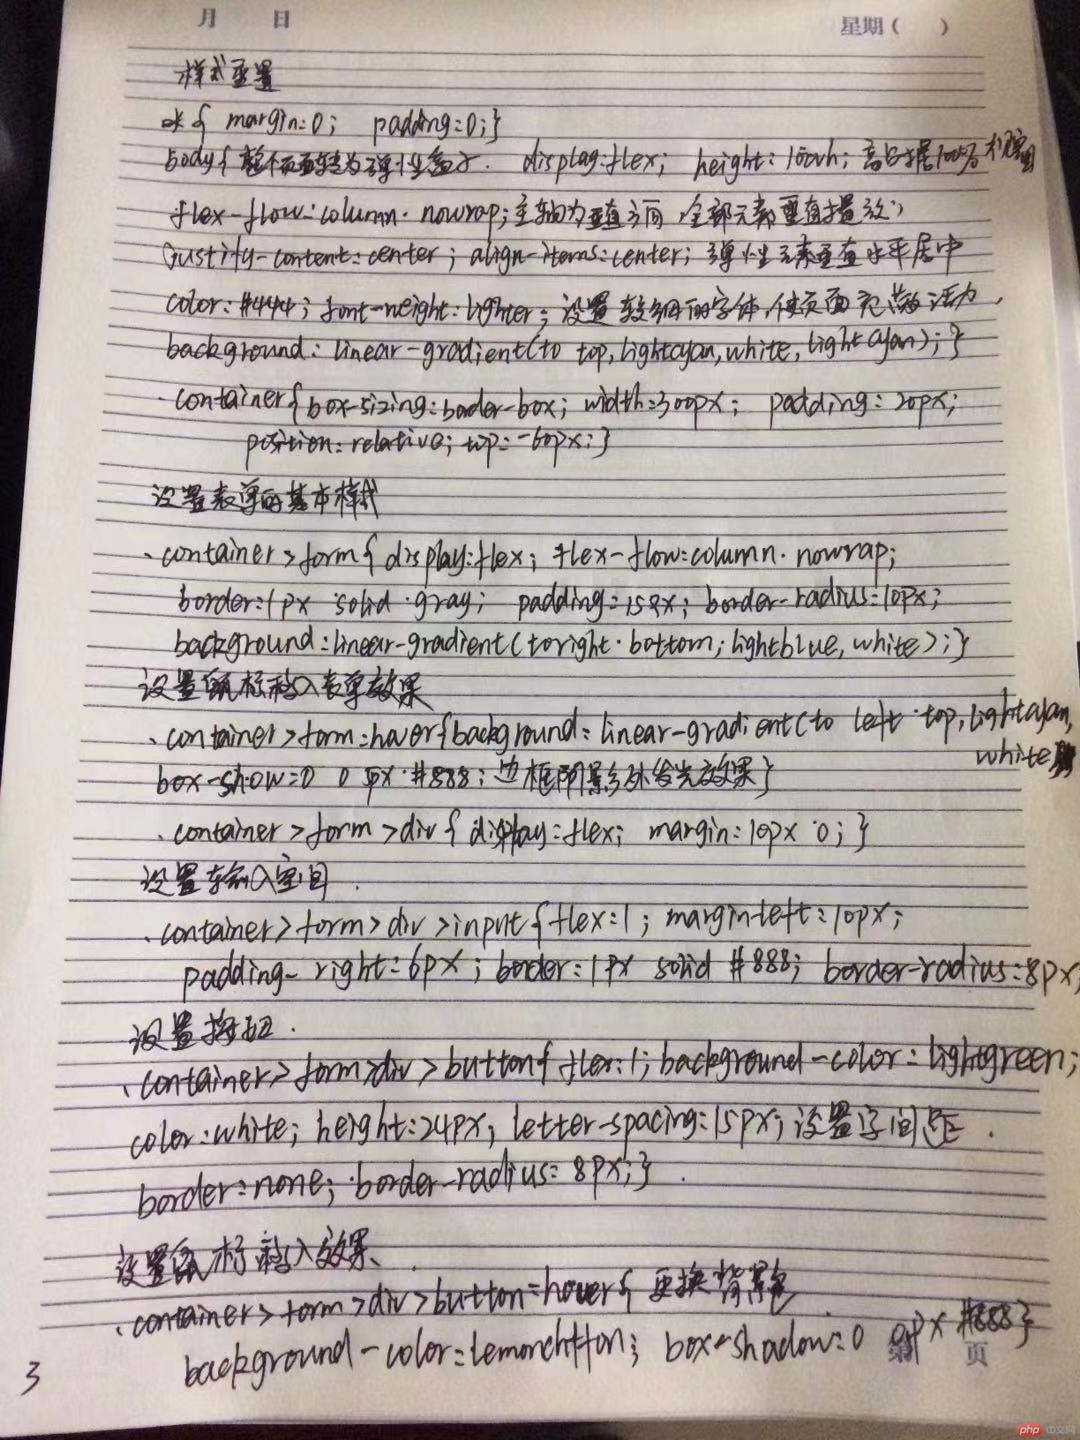 月 日 星期( )
样式重置
*{ margin:0; padding:0;}
body{ 整个页面转为弹性盒子. display:flex; height:100vh; 高占据100%
flex-flow:column nowrap; 主轴为垂直方向,全部元素垂直摆放
justify-content:center; align-items:center; 弹性元素垂直水平居中
color:#444; font-weight:lighter; 设置较细的字体,使页面充满活力
background: linear-gradient(to top,lightcyan,white,lightcyan);}
.container{box-sizing:border-box; width:300px; padding: 20px;
position:relative; top:-60px;}
设置表单的基本样式
.container>form{ display:flex; flex-flow:column nowrap;
border:1px solid gray; padding:15px; border-radius:10px;
background:linear-gradient(to right bottom,lightblue,white);}
设置鼠标移入表单效果
.container>form:hover{background: linear-gradient(to left top,lightcyan,
white
box-show:0 0 5px #888; 边框阴影外发光效果}
.container>form>div{ display:flex; margin:10px 0;}
设置输入空间.
.container>form>div>input{flex:1; margin-left:10px;
padding-right:6px; border:1px solid #888; border-radius:8px;
设置按钮.
.container>form>div>button{ flex:1; background-color:lightgreen;
color:white; height:24px; letter-spacing:15px; 设置字间距.
border:none; border-radius:8px;}
设置鼠标移入效果.
.container>form>div>button:hover{ 更换背景色
background-color:lemonchiffon; box-shadow:0 #888}
3 第 页
php 中文网